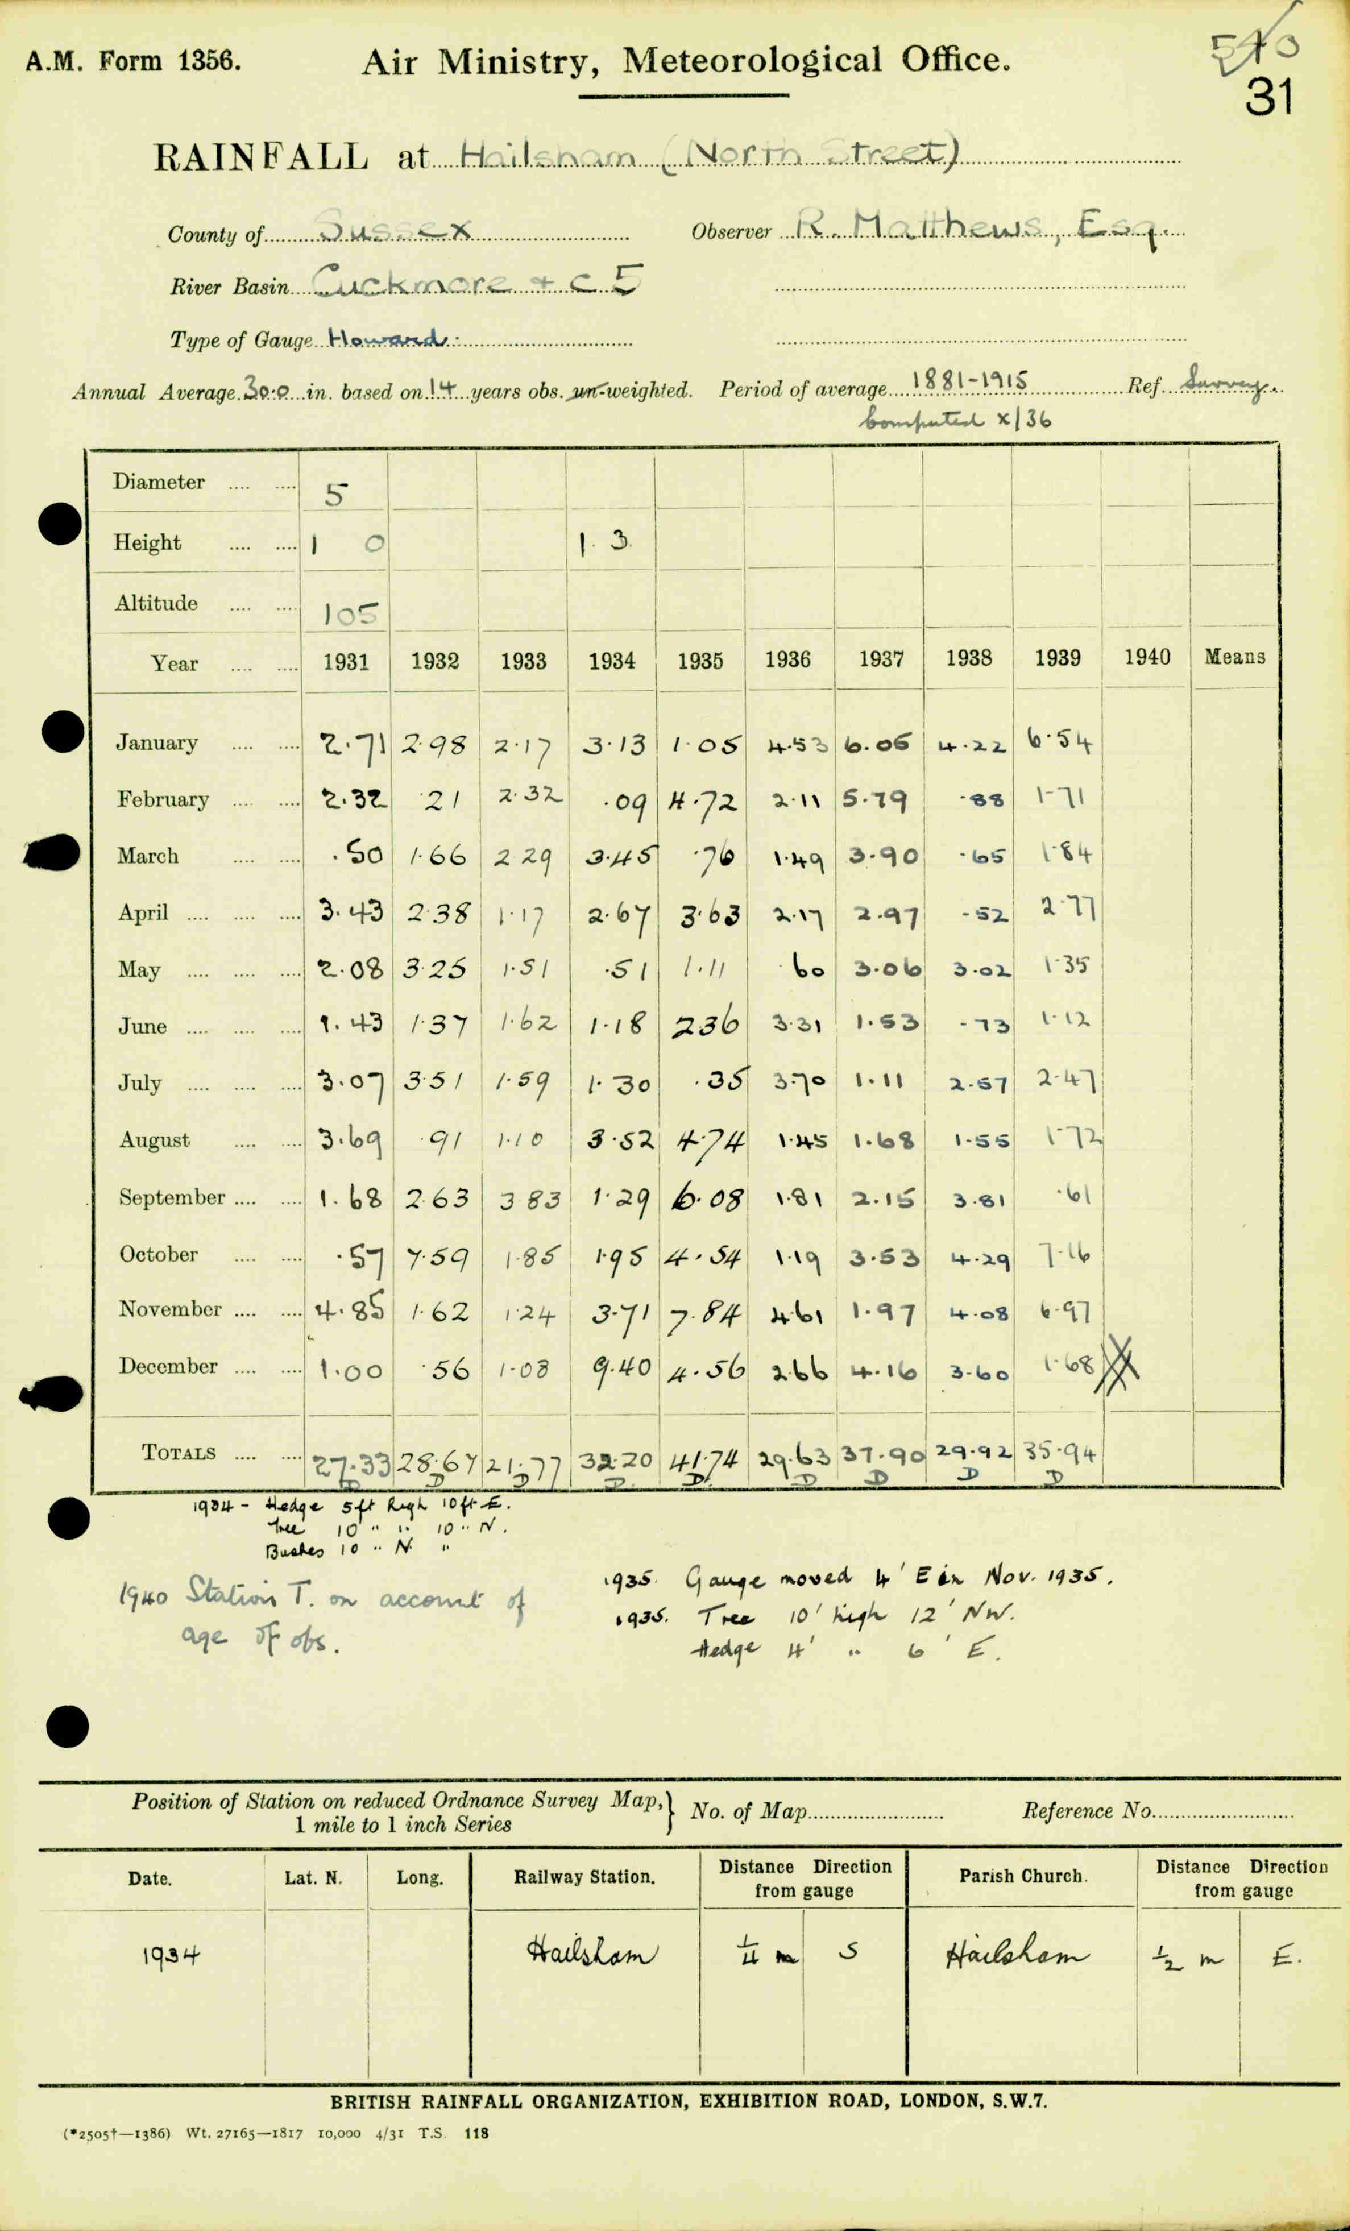 A.M. Form 1356.
Air Ministry, Meteorological Office.
31
RAINFALL at Hailsham (North Street)
County of Sussex Observer R. Matthews, Esq.
River Basin Cuckmore + C 5
Type of Gauge Howard.
Annual Average 30.0 in. based on 14 years obs. un-weighted. Period of average 1881-1915 Ref. Survey.
Computed X/36
Diameter .... .... 5
Height .... .... 1 0 1. 3
Altitude .... .... 105
Year .... .... 1931 1932 1933 1934 1935 1936 1937 1938 1939 1940 Means
January .... .... 2.71 2.98 2.17 3.13 1.05 4.53 6.05 4.22 6.54
February .... .... 2.32 .21 2.32 .09 4.72 2.11 5.79 .88 1.71
March .... .... .50 1.66 2 29 3.45 .76 1.49 3.90 .65 1.84
April .... .... .... 3.43 2.38 1.17 2.67 3.63 2.17 2.97 .52 2.77
May .... .... .... 2.08 3.25 1.51 .51 1.11 .60 3.06 3.02 1.35
June .... .... .... 1.43 1.37 1.62 1.18 2.36 3.31 1.53 .73 1.12
July .... .... .... 3.07 3.51 1.59 1.30 .35 3.70 1.11 2.57 2.47
August .... .... 3.69 .91 1.10 3.52 4.74 1.45 1.68 1.55 1.72
September .... .... 1.68 2.63 3 83 1.29 6.08 1.81 2.15 3.81 .61
October .... .... .57 7.59 1.85 1.95 4.54 1.19 3.53 4.29 7.16
November .... .... 4.85 1.62 1.24 3.71 7.84 4.61 1.97 4.08 6.97
December .... .... 1.00 .56 1.08 9.40 4.56 2.66 4.16 3.60 1.68
TOTALS .... .... 27.33 28.67 21.77 32.20 41.74 29.63 37.90 29.92 35.94
D D D D D D D D D
1934 - Hedge 5ft high 10ft E.
Tree 10 " " 10 " N.
Bushes 10 " N "
1940 Station T. on account of
age of obs.
1935. Gauge moved 4' E in Nov. 1935.
1935. Tree 10' high 12' NW.
Hedge 4' " 6' E.
Position of Station on reduced Ordnance Survey Map,
1 mile to 1 inch Series
No. of Map Reference No.
Date. Lat. N. Long. Railway Station. Distance Direction from gauge Parish Church. Distance Direction from gauge
1934 Hailsham 1/4 m S Hailsham 1/2 m E.
BRITISH RAINFALL ORGANIZATION, EXHIBITION ROAD, LONDON, S.W.7.
(*2505†—1386) Wt. 27165—1817 10,000 4/31 T.S. 118